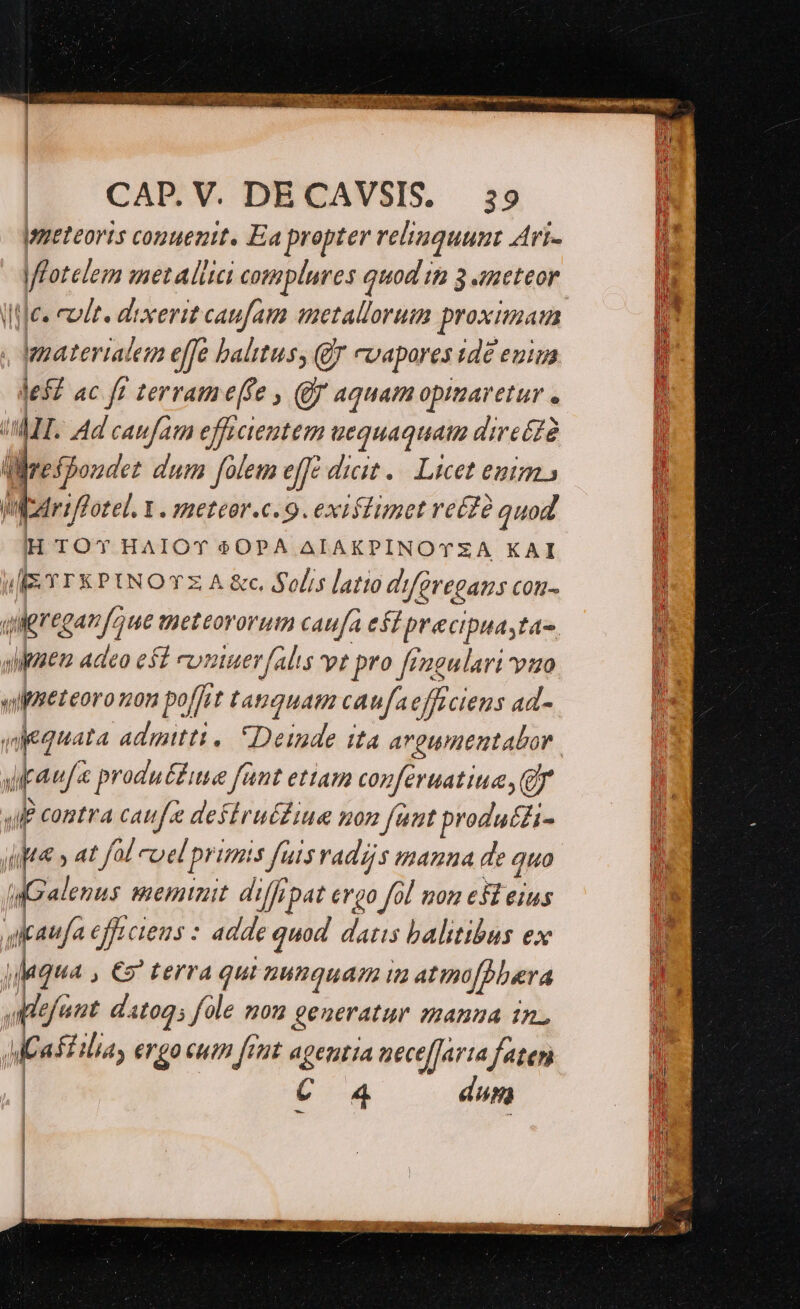 CAP. V. DE CAVSIS. 39
meteoris conuenit. Ea propter relinquunt Ari-
ſtotelem metallici complures quod in 3. meteor
c. vlt. dixerit cauſam metallorum proximam
materialem eſſe halitus, & vapores idē enim
eſt ac ſi terram eſſe, & aquam opinaretur.
II. Ad cauſam efficientem nequaquam directè
reſpondet dum ſolem eſſe dicit. Licet enim
Ariſtotel. 1. meteor. c. 9. exiſtimet rectè quod
Η ΤΟΥ ΗΛΙΟΥ ΦΟΡΑ ΔΙΑΚΡΙΝΟΥΣΑ ΚΑΙ
ΣΥΓΚΡΙΝΟΥΣΑ &c. Solis latio diſgregans con-
greganſque meteororum cauſa eſt præcipua, ta-
men adeo eſt vniuerſalis vt pro ſingulari vno
meteoro non poſſit tanquam cauſa efficiens ad-
æquata admitti. Deinde ita argumentabor
cauſæ productiuæ ſunt etiam conſeruatiuæ, &
è contra cauſæ deſtructiuæ non ſunt producti-
uæ, at ſol vel primis ſuis radijs manna de quo
Galenus meminit diſſipat ergo ſol non eſt eius
cauſa efficiens: adde quod datis halitibus ex
aqua, & terra qui nunquam in atmoſphæra
deſunt datoq; ſole non generatur manna in
Caſtilia, ergo cum ſint agentia neceſſaria faten
C 4 dum